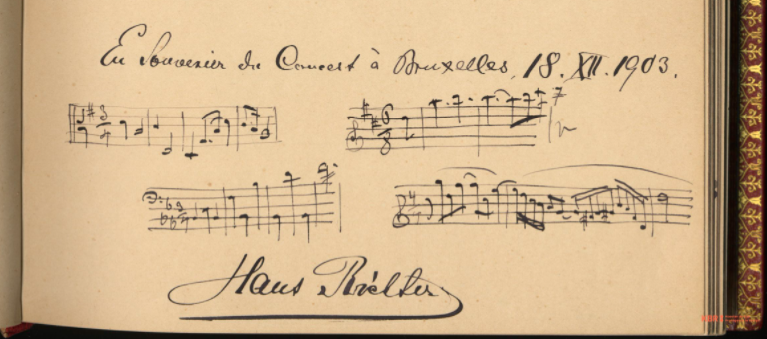 En souvenir du Concert à Bruxelles, 18. XII. 1903.
Hans Richter